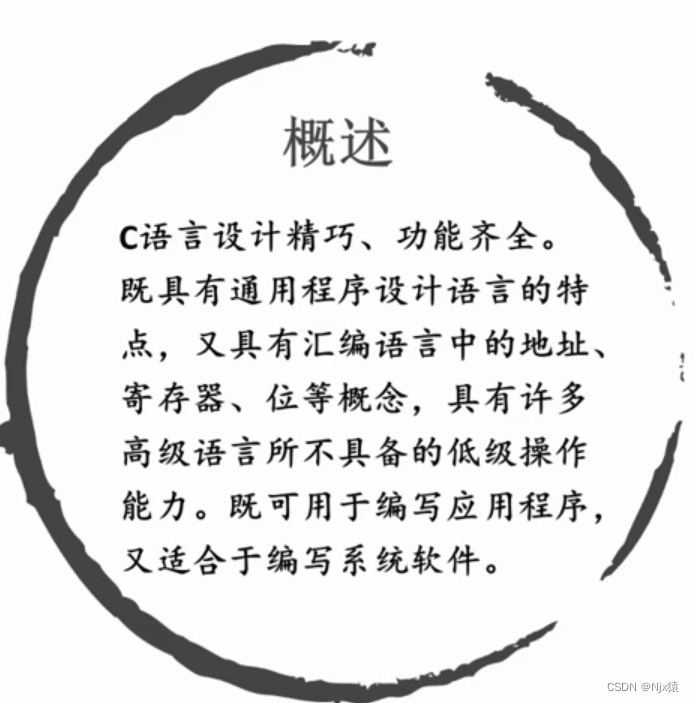 概述
C语言设计精巧、功能齐全。
既具有通用程序设计语言的特
点，又具有汇编语言中的地址、
寄存器、位等概念，具有许多
高级语言所不具备的低级操作
能力。既可用于编写应用程序，
又适合于编写系统软件。
CSDN @Njx猿